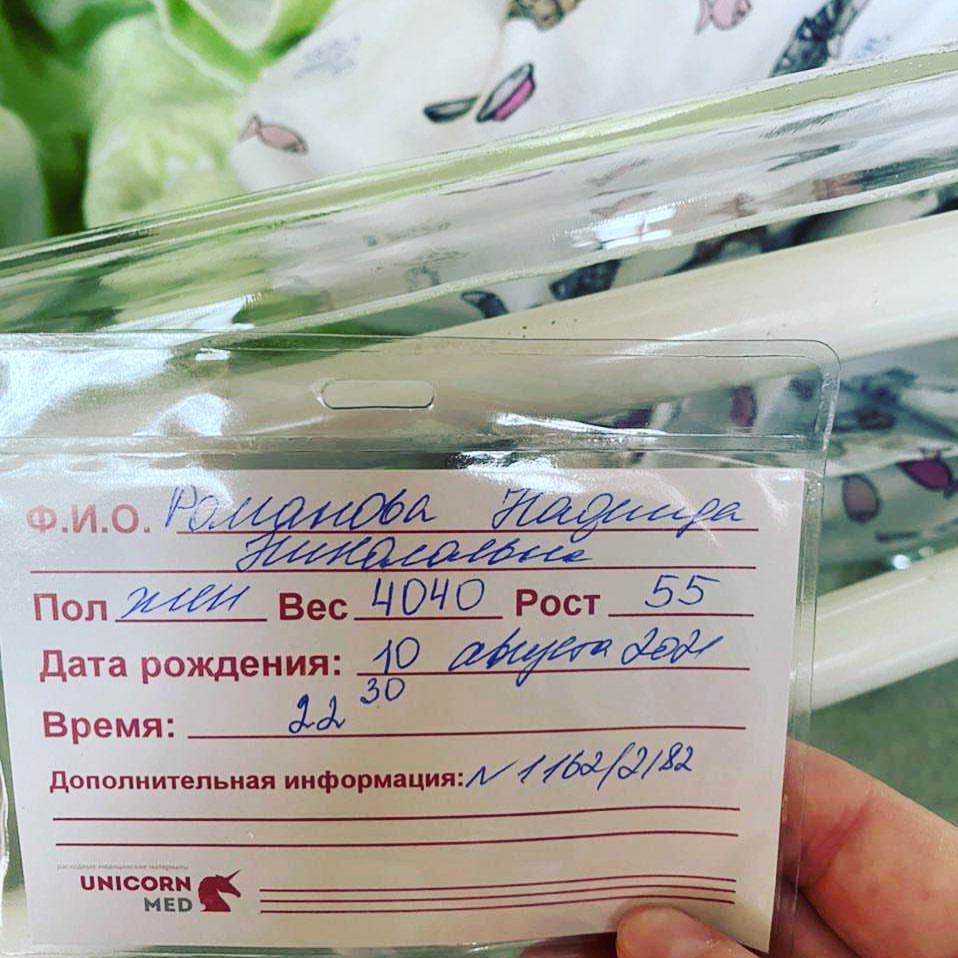 Ф.И.О. Романова Надежда
Николаевна
Пол жен Вес 4040 Рост 55
Дата рождения: 10 августа 2021
Время: 22 30
Дополнительная информация: N 1162/2182
расходные медицинские материалы
UNICORN
MED